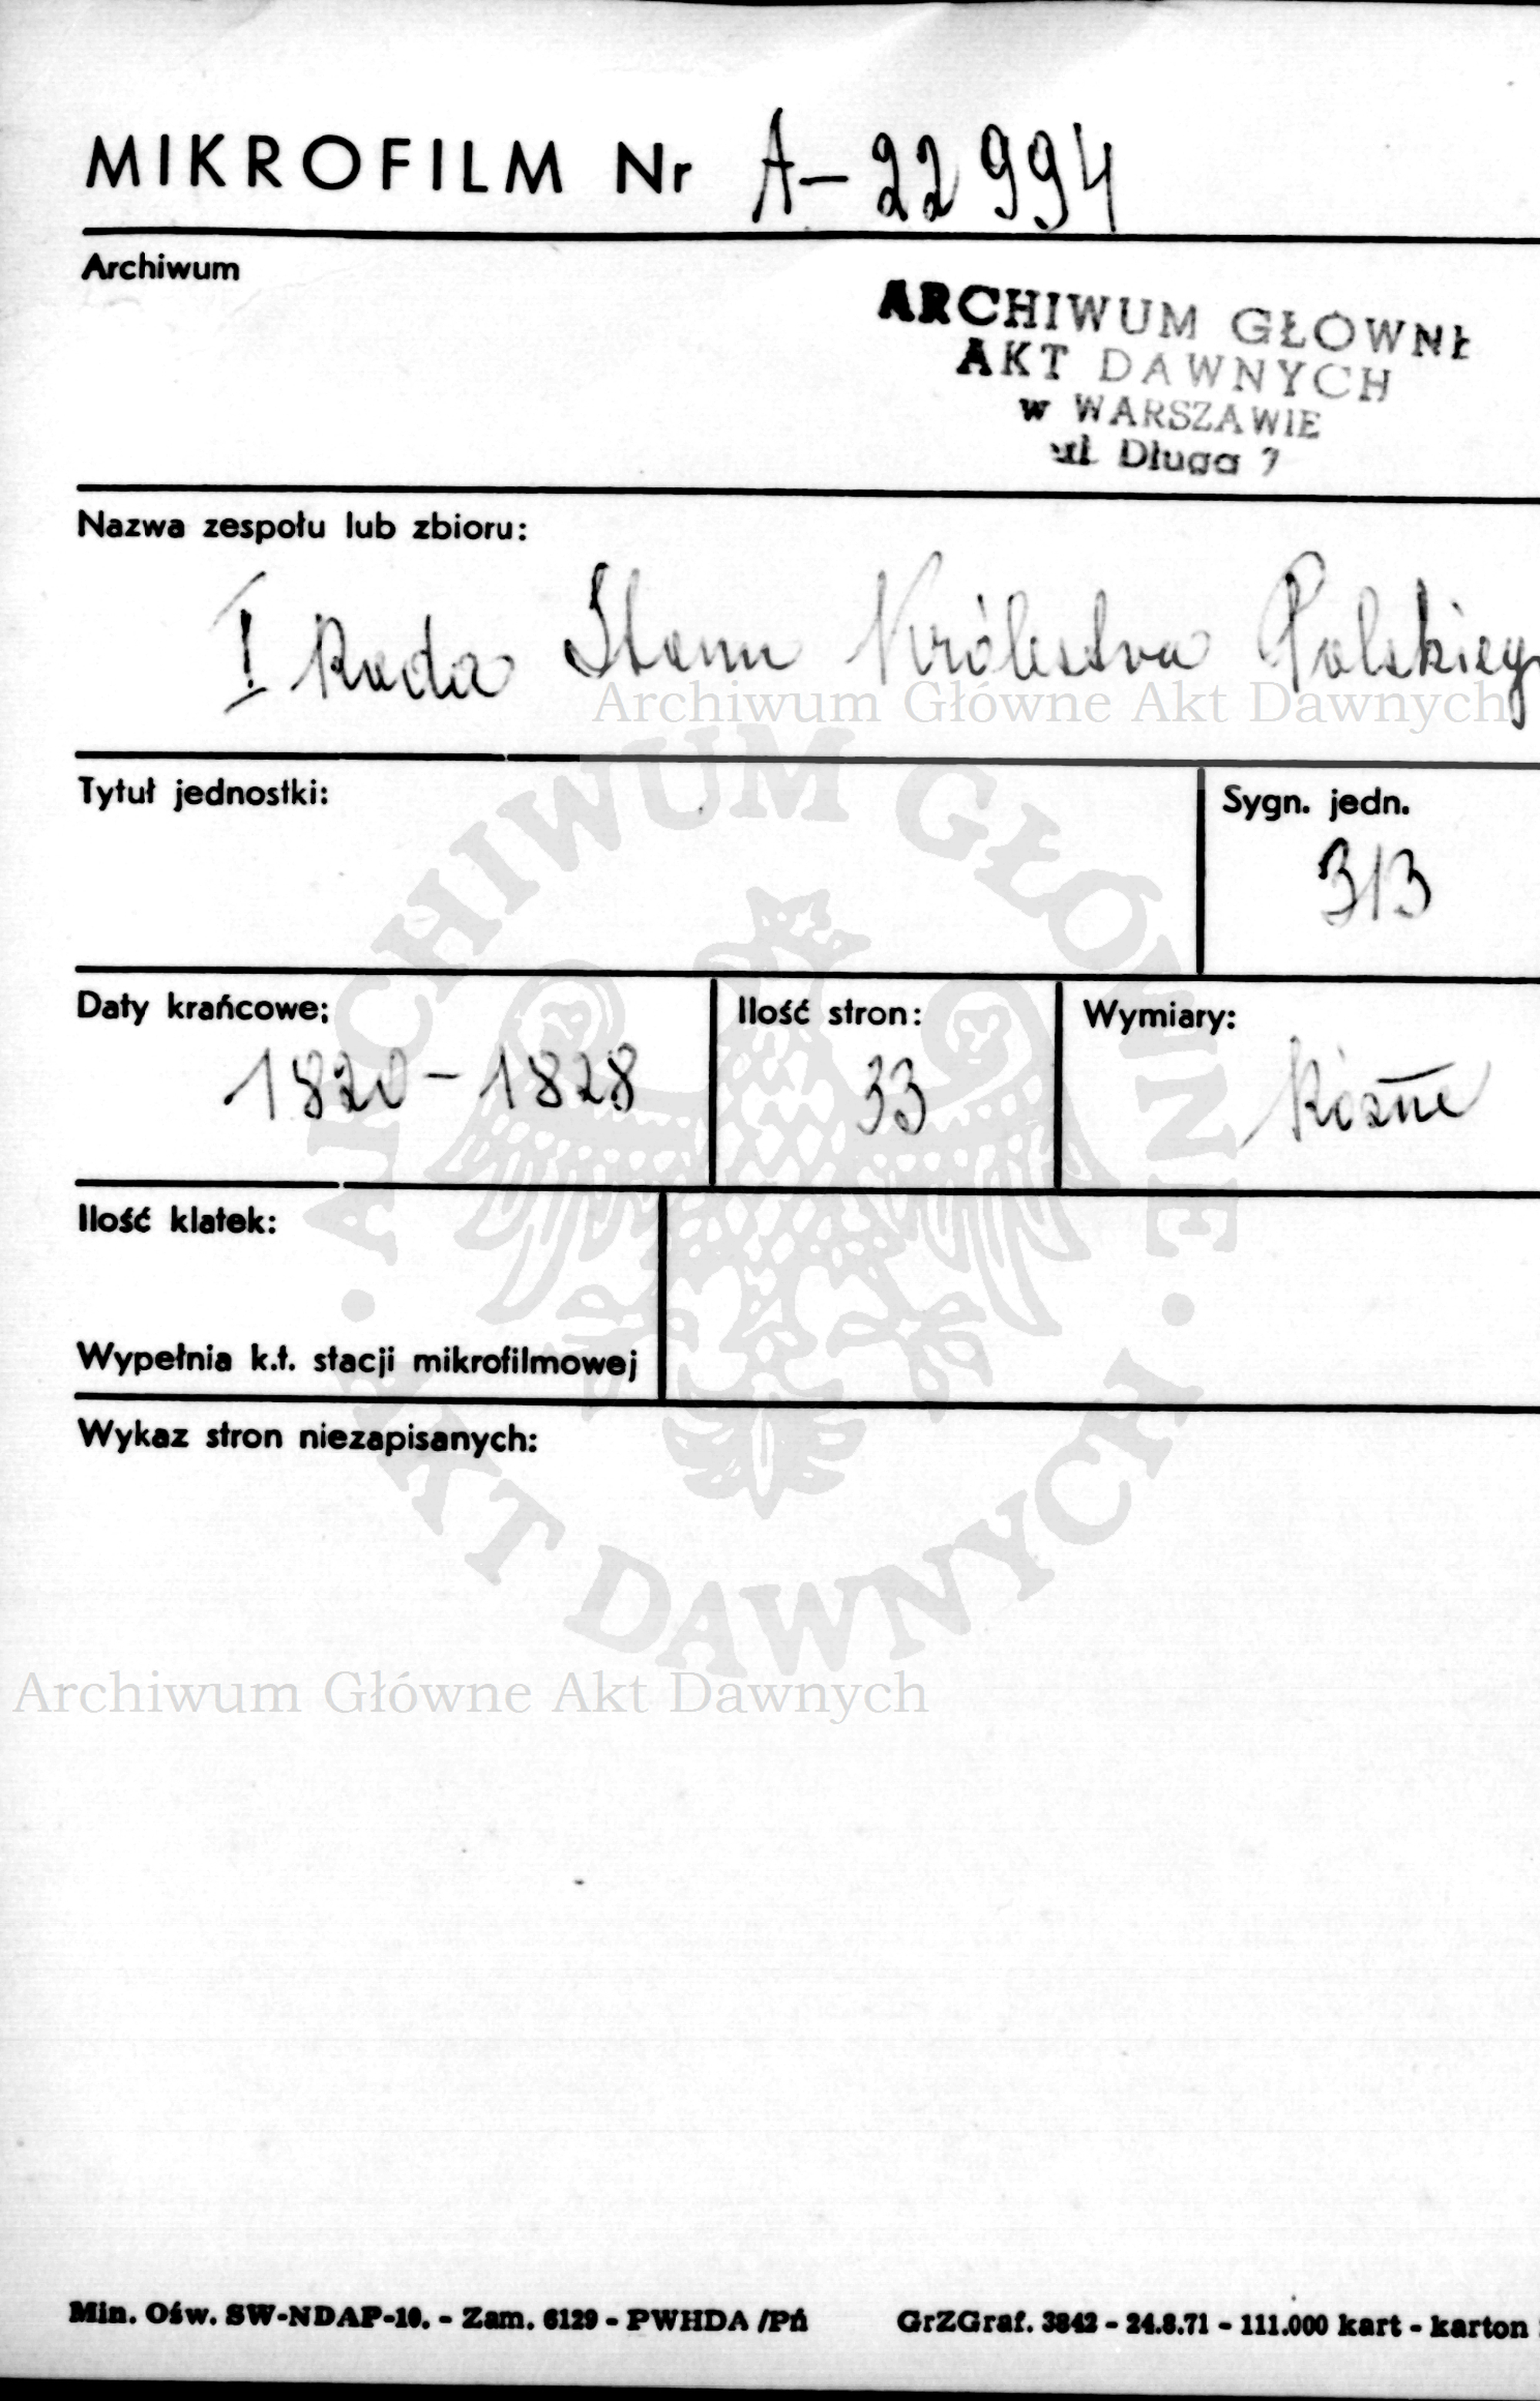 MIKROFILM Nr A-22994
Archiwum
ARCHIWUM GŁÓWNE
AKT DAWNYCH
w WARSZAWIE
ul. Długa 7
Nazwa zespołu lub zbioru:
I Rada Stanu Królestwa Polskieg
Archiwum Główne Akt Dawnych
Tytuł jednostki:
Sygn. jedn.
313
ARCHIWUM GŁÓWNE AKT DAWNYCH
Daty krańcowe:
1820-1828
Ilość stron:
33
Wymiary:
Różne
Ilość klatek:
Wypełnia k.t. stacji mikrofilmowej
Wykaz stron niezapisanych:
Archiwum Główne Akt Dawnych
Min. Ośw. SW-NDAP-10. - Zam. 6129 - PWHDA /Pń
GrZGraf. 3842 - 24.8.71 - 111.000 kart - karton